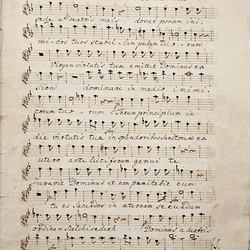 sede a dextris meis donec ponam ini-
micos tuos scabel- lum pedum tuo- rum
Virgam virtutis tuæ emittet Dominus ex
sion dominare in medio inimi-
corum tuo- rum Tecum principium in
die virtutis tuæ in splendoribus sanctorum ex
utero ante luciferum genui te
juravit Dominus et non pænitebit eum
tu es Sacerdos in æternum secundum
ordinem Melchisedech Dominus a dextris